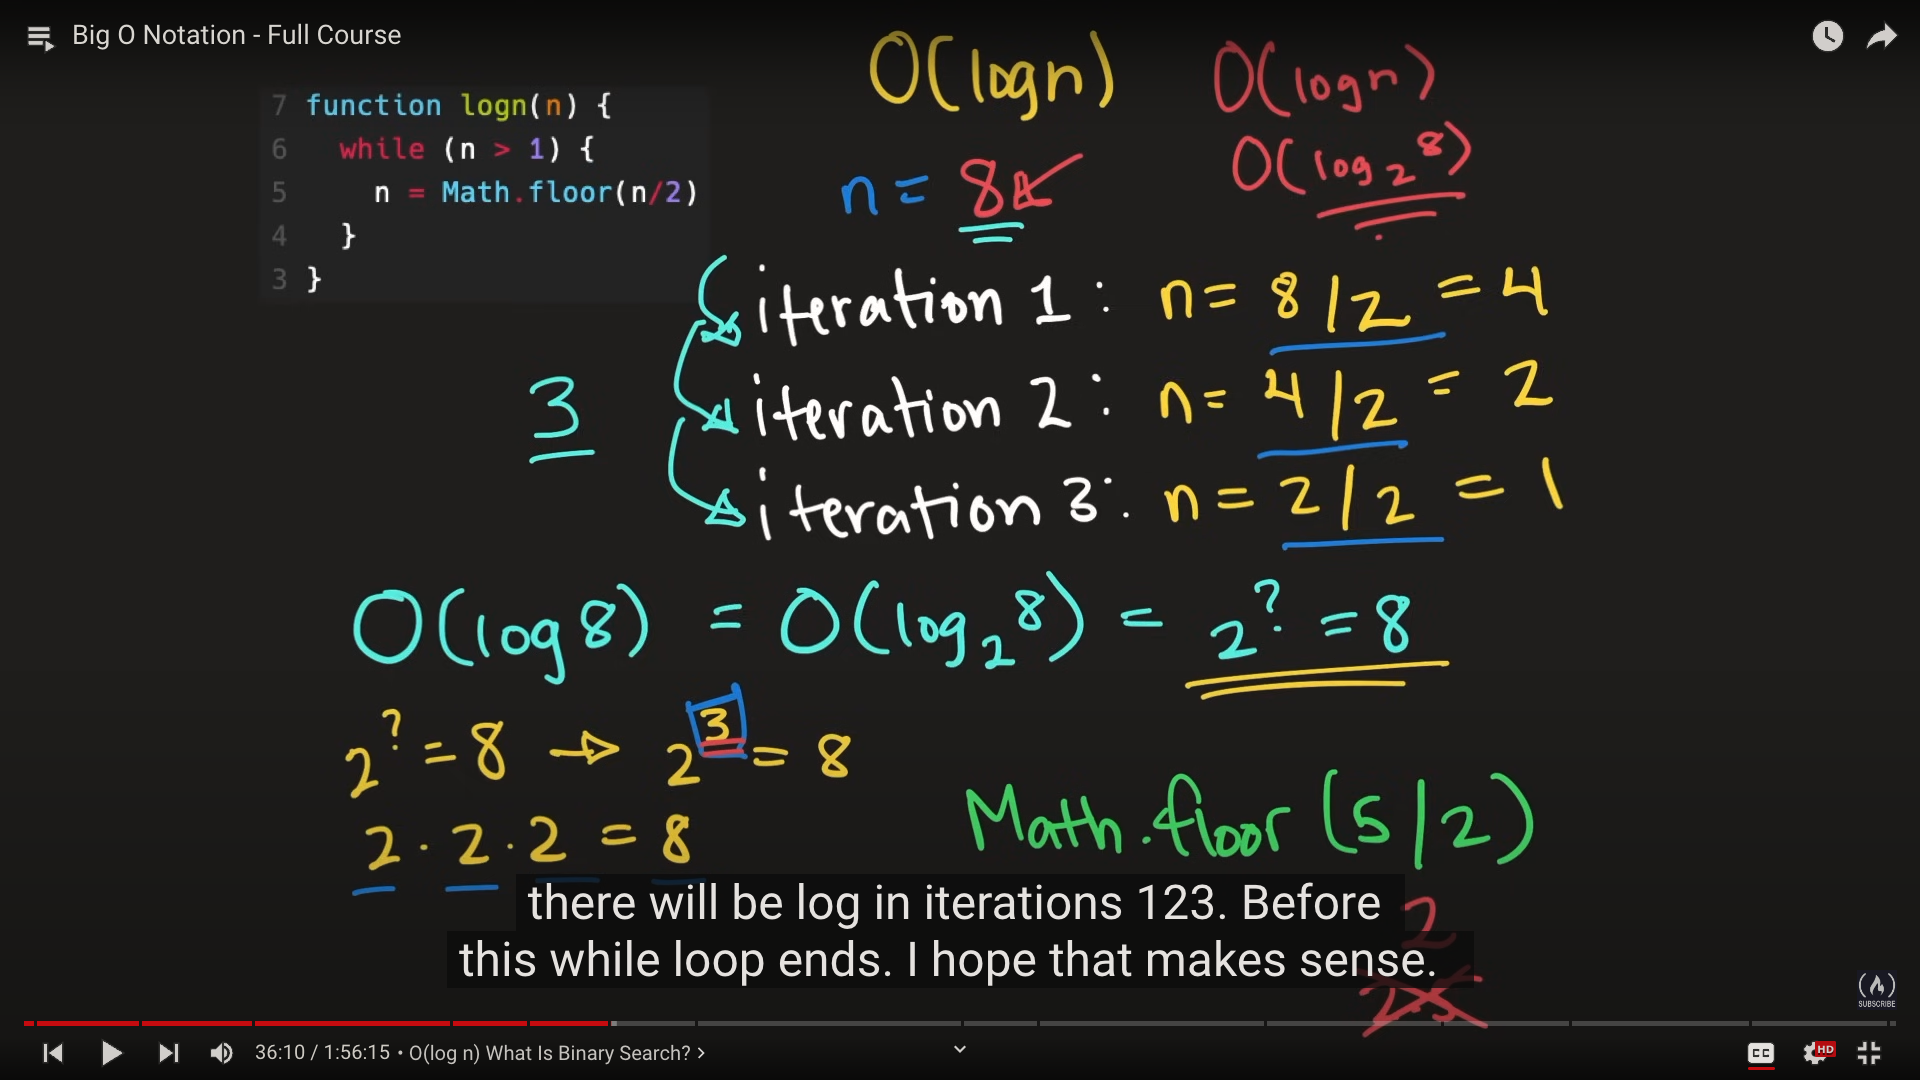 Big O Notation - Full Course
7 function logn(n) {
6 while (n > 1) {
5 n = Math.floor(n/2)
4 }
3 }
O(logn)
O(logn)
O(log₂8)
n = 8
iteration 1: n = 8/2 = 4
iteration 2: n = 4/2 = 2
iteration 3: n = 2/2 = 1
3
O(log8) = O(log₂8) = 2^? = 8
2^? = 8 → 2^3 = 8
2 · 2 · 2 = 8
Math.floor(5/2)
2
2.5
there will be log in iterations 123. Before
this while loop ends. I hope that makes sense.
SUBSCRIBE
36:10 / 1:56:15 • O(log n) What Is Binary Search? >
CC
HD